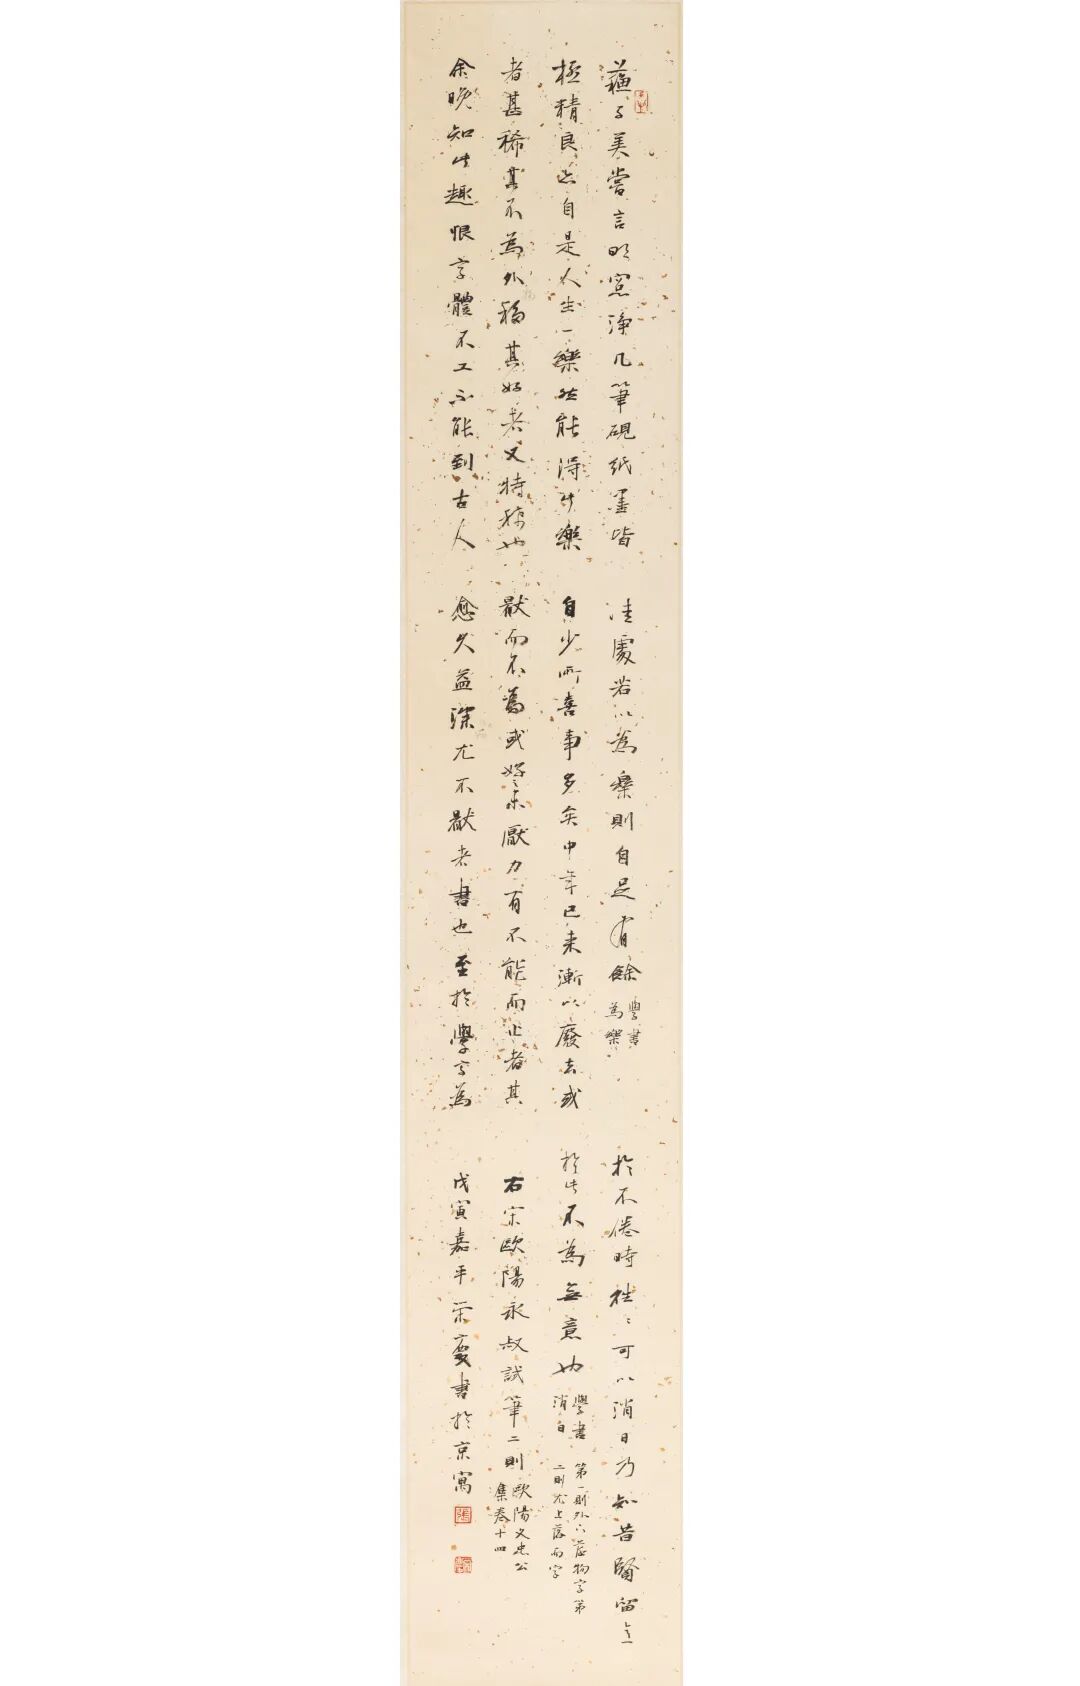 蘇子美嘗言明窻淨几筆硯紙墨皆
極精良亦自是人生一樂然能得此樂
者甚稀其不為外移其好者又特稀也
余晚知此趣恨字體不工不能到古人
佳處若以為樂則自足有餘
學書
為樂
自少所喜事多矣中年已來漸以廢去或
猒而不為或好之未厭力有不能而止者其
愈久益深尤不猒者書也至於學字為
於不倦時往〻可以消日乃知昔賢留意
於此不為無意也
學書
消日
第一則外下落物字第
二則尤上落而字
右宋歐陽永叔試筆二則
歐陽文忠公
集卷十四
戊寅嘉平榮慶書於京寓